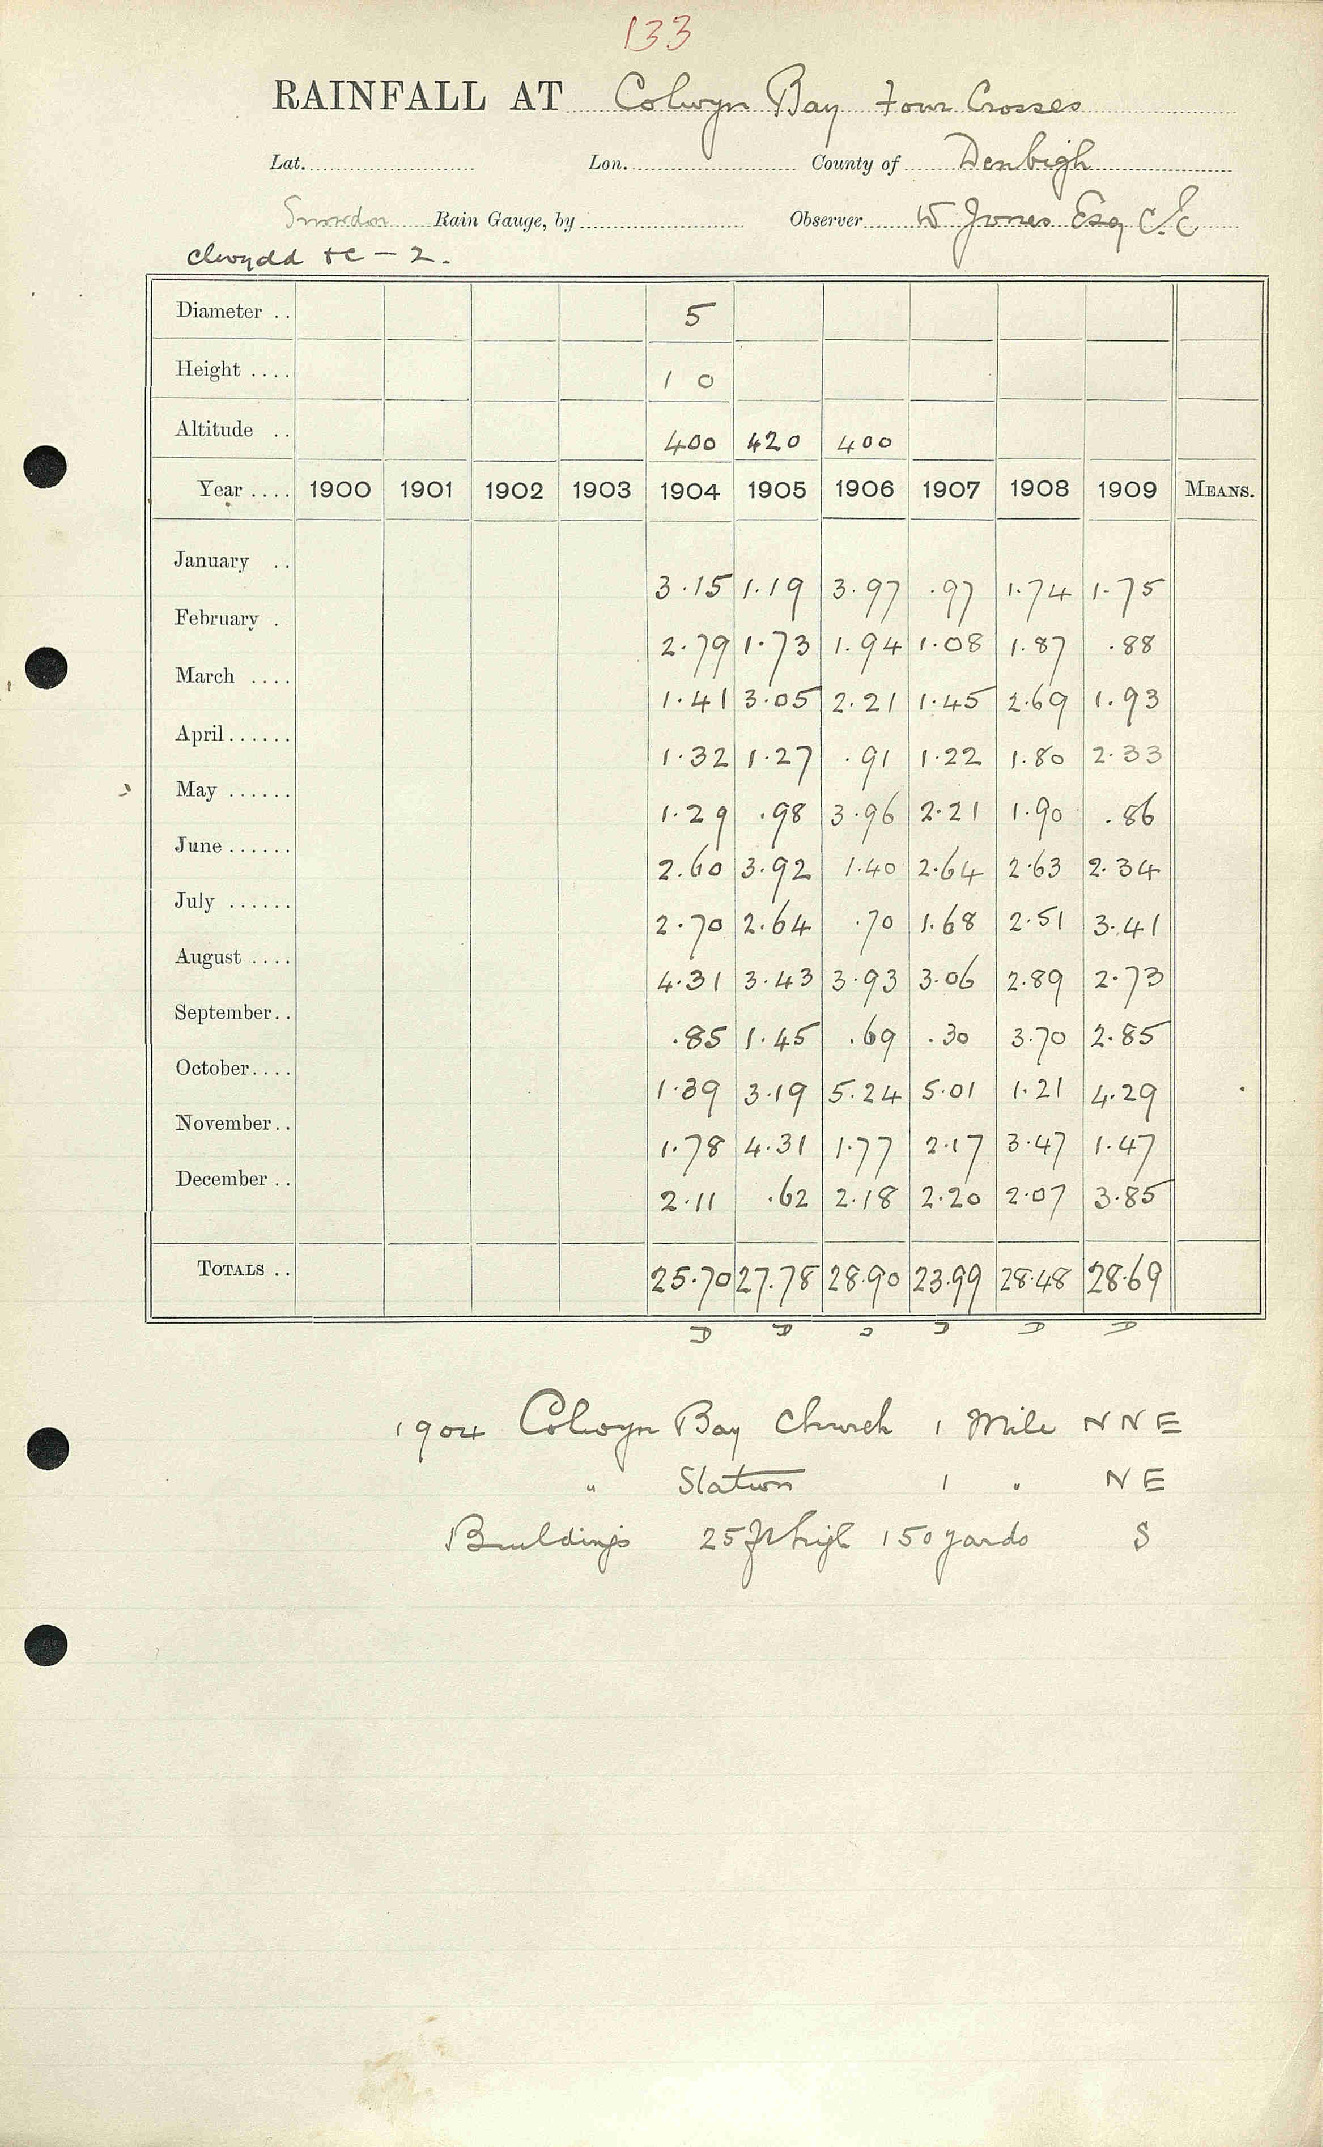 133
RAINFALL AT Colwyn Bay Four Crosses
Lat. Lon. County of Denbigh
Snowdon Rain Gauge, by Observer W Jones Esq C.E
Clwydd &c - 2.
Diameter .. 5
Height .... 1 0
Altitude .. 400 420 400
Year .... 1900 1901 1902 1903 1904 1905 1906 1907 1908 1909 MEANS.
January .. 3.15 1.19 3.97 .97 1.74 1.75
February . 2.79 1.73 1.94 1.08 1.87 .88
March .... 1.41 3.05 2.21 1.45 2.69 1.93
April...... 1.32 1.27 .91 1.22 1.80 2.33
May ...... 1.29 .98 3.96 2.21 1.90 .86
June ...... 2.60 3.92 1.40 2.64 2.63 2.34
July ...... 2.70 2.64 .70 1.68 2.51 3.41
August .... 4.31 3.43 3.93 3.06 2.89 2.73
September.. .85 1.45 .69 .30 3.70 2.85
October.... 1.39 3.19 5.24 5.01 1.21 4.29
November.. 1.78 4.31 1.77 2.17 3.47 1.47
December .. 2.11 .62 2.18 2.20 2.07 3.85
TOTALS .. 25.70 27.78 28.90 23.99 28.48 28.69
D D D D D D
1904 Colwyn Bay Church 1 Mile NNE
" Station 1 " NE
Buildings 25 ft high 150 yards S